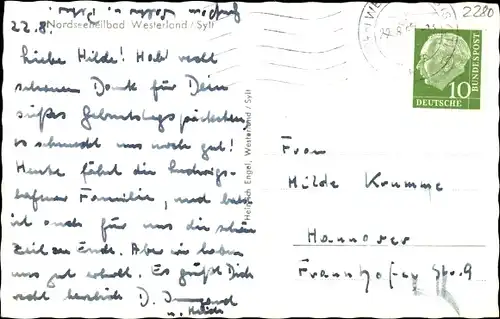 22.8.
Nordseeheilbad Westerland / Sylt
Liebe Hilde! Hab recht
schönen Dank für Dein
süßes Geburtstagspäckchen,
es schmeckt uns noch gut!
Heute fährt die Ludwigs-
hafener Familie, und bald
ist auch für uns die schöne
Zeit zu Ende. Aber wir haben
uns gut erholt. Es grüßt Dich
recht herzlich D. Irmgard
u. 
Heinrich Engel, Westerland / Sylt
2280
DEUTSCHE
BUNDESPOST
10
Frau
Hilde Krumme
Hannover
Fraunhofer Str. 9